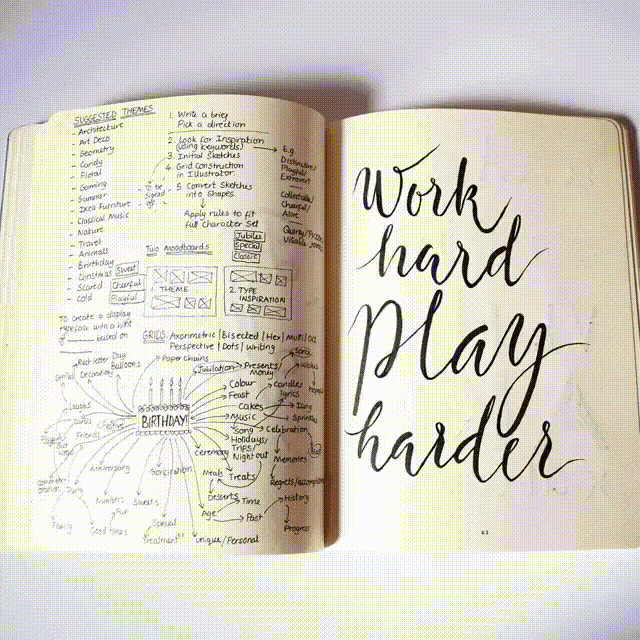 SUGGESTED THEMES
- Architecture
- Art Deco
- Geometry
- Candy
- Floral
- Gaming
- Summer
- Ikea Furniture
- Classical Music
- Nature
- Travel
- Animals
- Birthday
- Christmas
- Scared
- Cold
Sweet
Cheerful
Playful
1. Write a brief
Pick a direction
2. Look for Inspiration
(using keywords)
3. Initial Sketches
4. Grid Construction
in Illustrator.
5. Convert Sketches
into Shapes.
Apply rules to fit
full Character Set
to be
signed
off
E.g
Distinctive/
Playful/
Extrovert
Collectable/
Cheerful/
Alive
Jubilee
Special
Classic
Two Moodboards
1. THEME
2. TYPE
INSPIRATION
To create a display
typeface with a
of
based on
GRIDS: Axonmetric/Bisected/Hex/Multi/
Perspective/Dots/Writing
Red-letter Day
Balloons
Decoration
Paperchains
Jubilation
Presents/
Money
Colour
Feast
Cakes
Music
Song
Celebration
Candles
lyrics
Wishes
Icing
Sprinkles
Holidays/
Trips/
Night out
Memories
BIRTHDAY!
Festive
Friends
Ceremony
Meals
Treats
Desserts
Time
History
Age
Past
Progress
Anniversary
Numbers
Sweets
Fun
Family
Good times
Special
Treatment
Unique/Personal
Work
hard
Play
harder